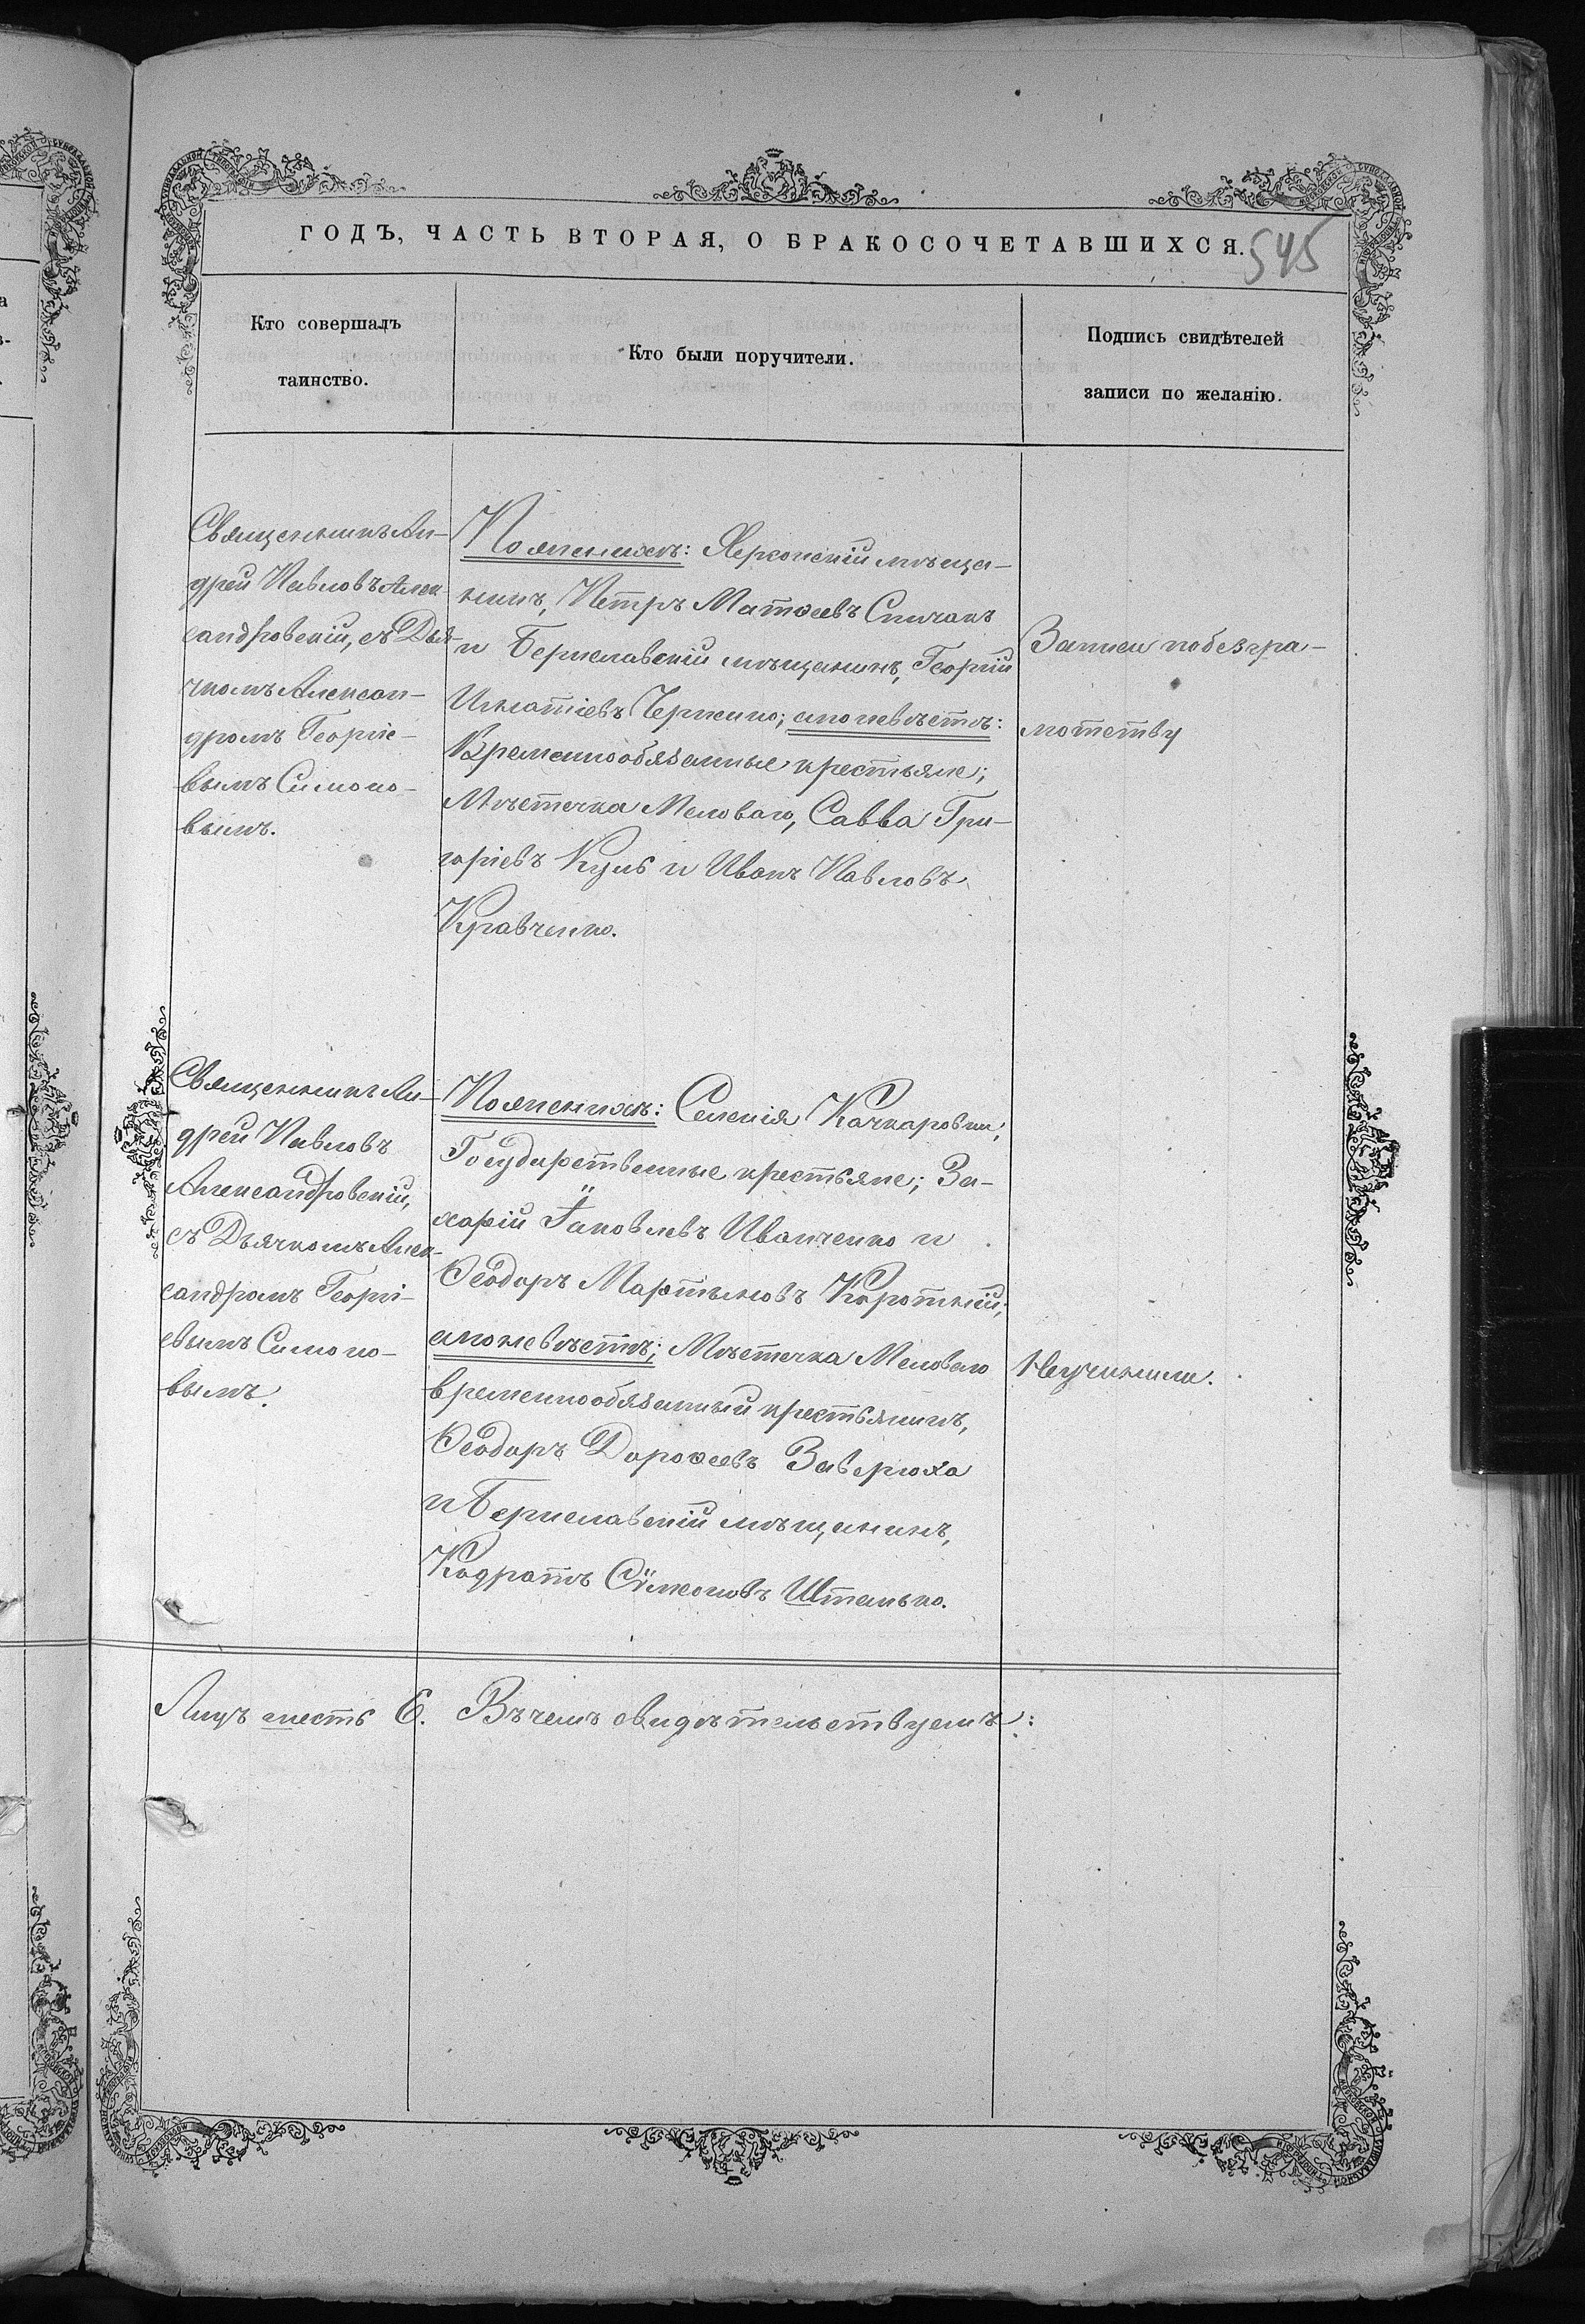 ГОДЪ, ЧАСТЬ ВТОРАЯ, О БРАКОСОЧЕТАВШИХСЯ.
545
Кто совершалъ
таинство.
Кто были поручители.
Подпись свидѣтелей
записи по желанію.
Священникъ Ан-
дрей Павловъ Алек-
сандровскій, съ Дья-
чкомъ Алексан-
дромъ Георгіе-
вымъ Симоно-
вымъ.
По женихѣ: Херсонскій мѣща-
нинъ, Петръ Матѳеевъ Спичакъ
и Бериславскій мѣщанинъ, Георгій
Игнатіевъ Черненко; а по невѣстѣ:
Временнообязанные крестьяне;
Мѣстечка Меловаго, Савва Гри-
горіевъ Куль и Иванъ Павловъ
Кравченко.
Записи по безгра-
мотству
Священникъ Ан-
дрей Павловъ
Александровскій,
съ Дьячкомъ Алек-
сандромъ Георгі-
евымъ Симоно-
вымъ.
По женихѣ: Селенія Качкаровки,
Государственные крестьяне; За-
харій Іаковлевъ Иванченко и
Ѳеодоръ Мартыновъ Короткій;
а по невѣстѣ; Мѣстечка Меловаго
временнообязанный крестьянинъ,
Ѳеодоръ Дороѳеевъ Заверюха
и Бериславскій мѣщанинъ,
Кодратъ Сѵмеоновъ Штанько.
Неучинили.
Лицъ шесть 6. Въ чемъ свидѣтельствуемъ: